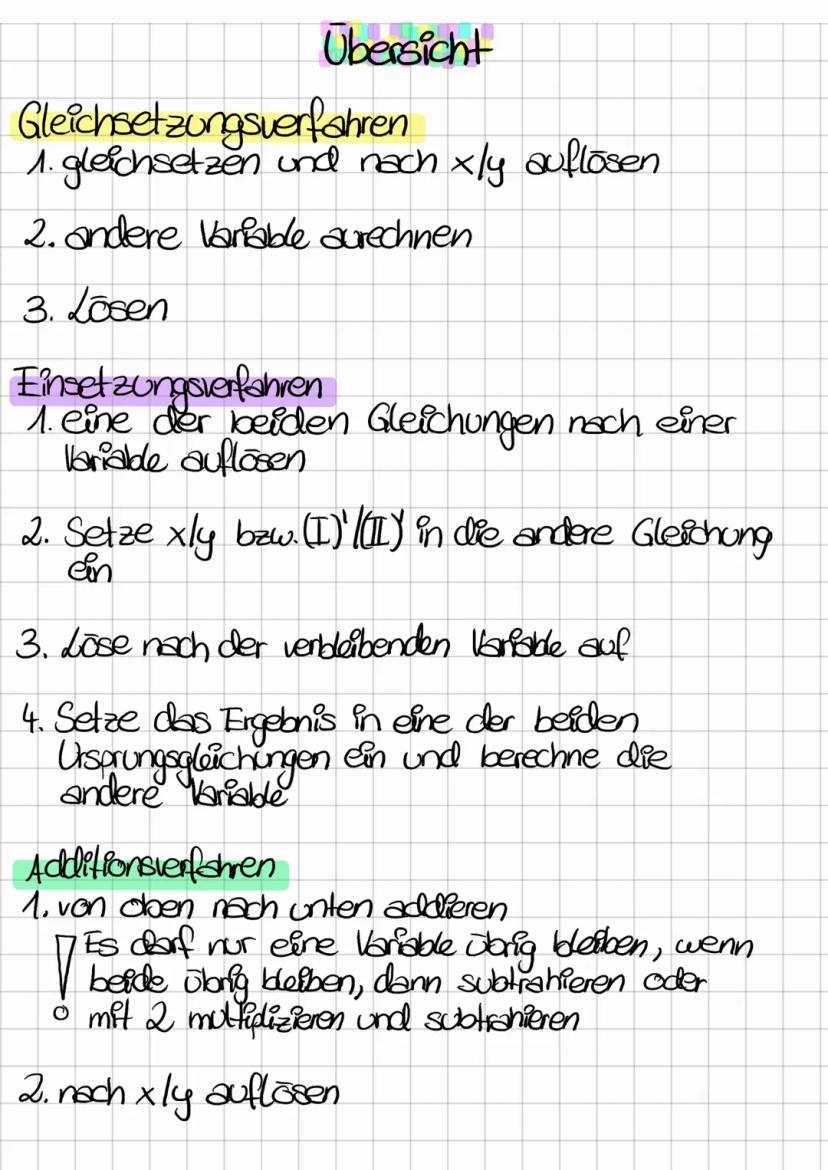 Übersicht
Gleichsetzungsverfahren
1. gleichsetzen und nach x/y auflösen
2. andere Variable aurechnen
3. Lösen
Einsetzungsverfahren
1. eine der beiden Gleichungen nach einer
Variable auflösen
2. Setze x/y bzw. (I)'/(II)' in die andere Gleichung
ein
3. Löse nach der verbleibenden Variable auf
4. Setze das Ergebnis in eine der beiden
Ursprungsgleichungen ein und berechne die
andere Variable
Additionsverfahren
1. von oben nach unten addieren
! Es darf nur eine Variable übrig bleiben, wenn
beide übrig bleiben, dann subtrahieren oder
mit 2 multiplizieren und subtrahieren
2. nach x/y auflösen